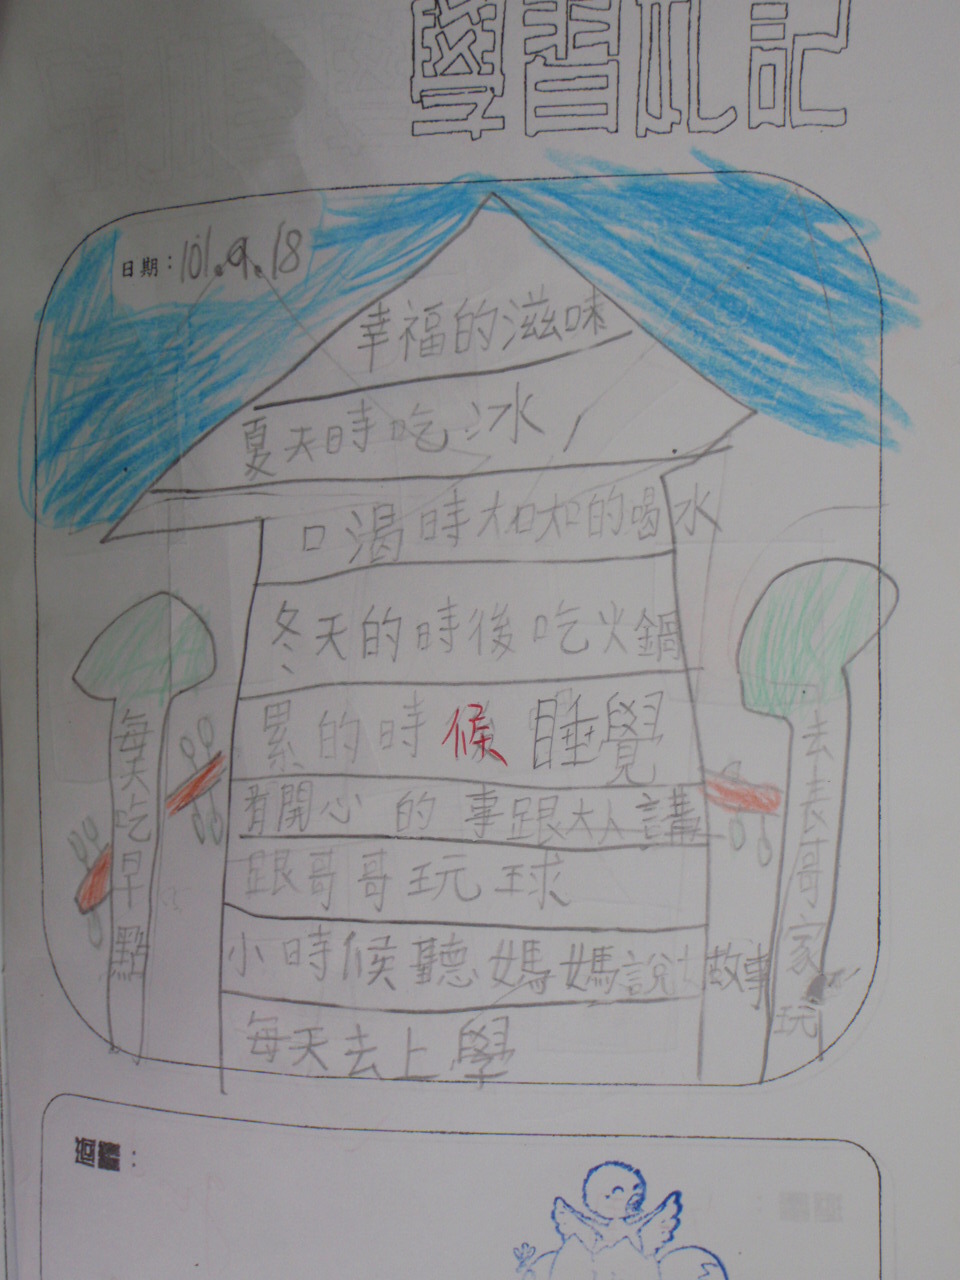 學習札記
日期：101.9.18
幸福的滋味
夏天時吃冰
口渴時大口大口的喝水
冬天的時後吃火鍋
累的時候睡覺
有開心的事跟大人講
跟哥哥玩球
小時候聽媽媽說故事
每天去上學
每天吃早點
去表哥家玩
迴響：